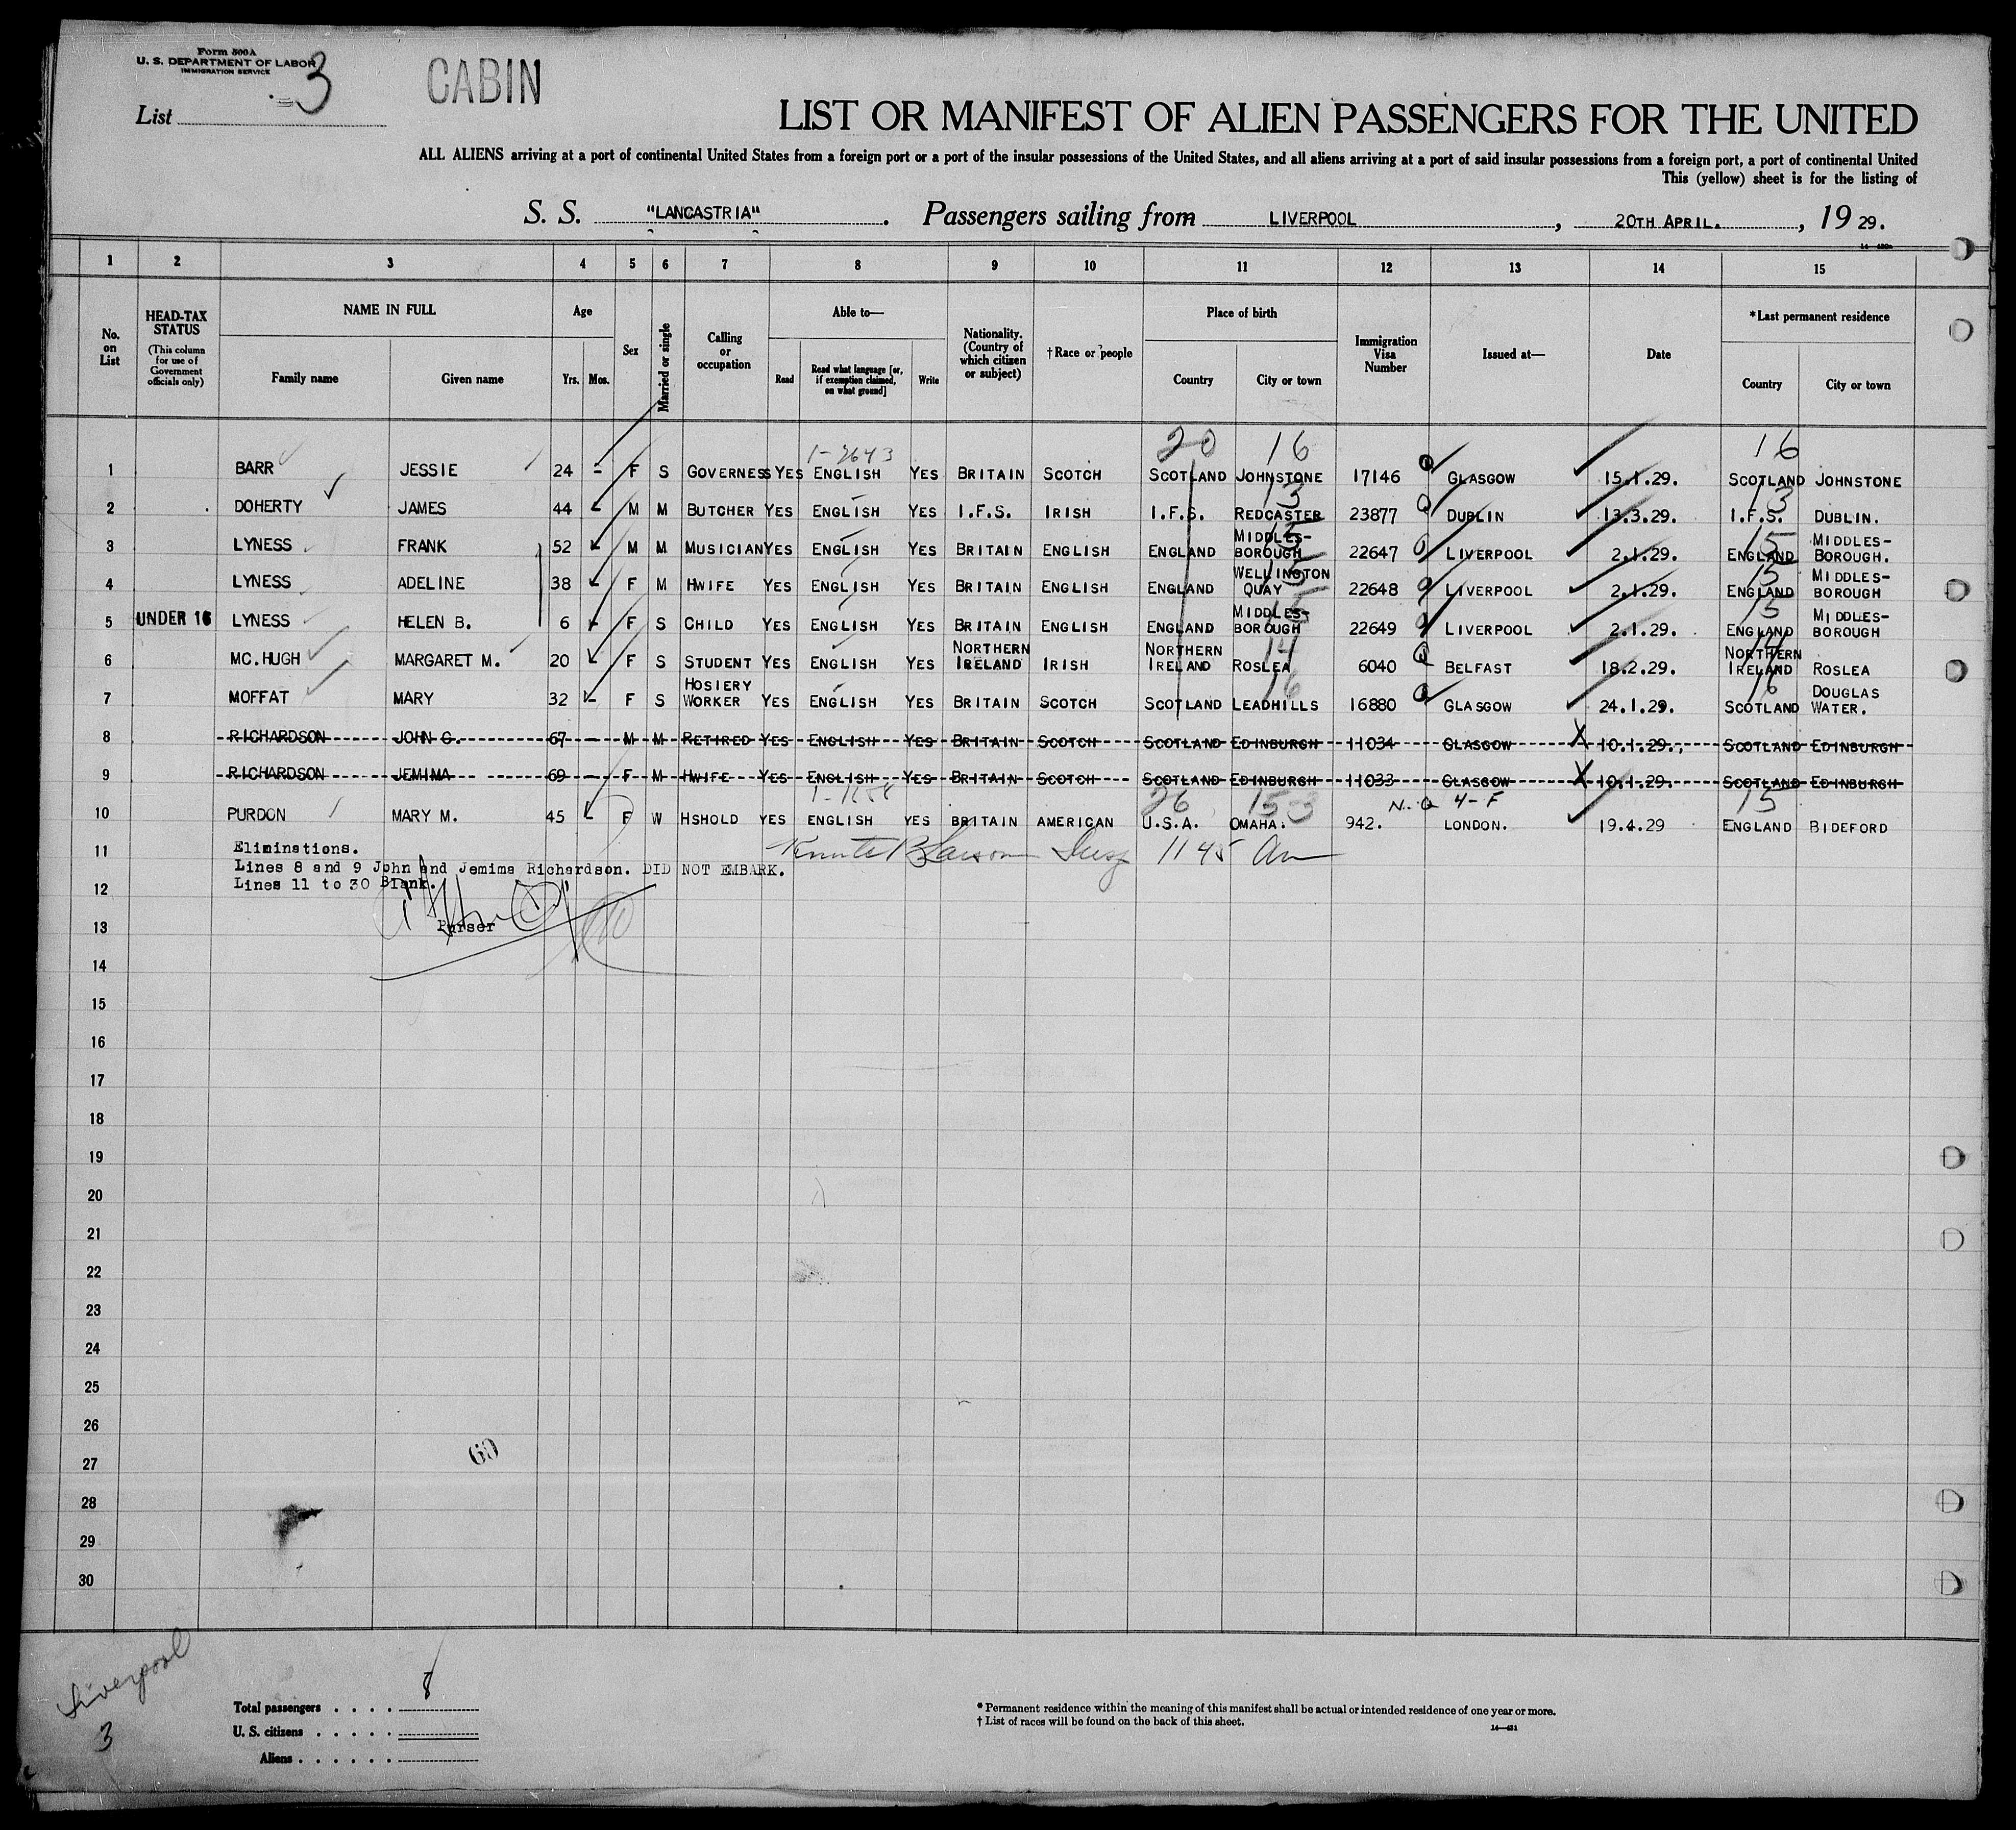 Form 500A
U. S. DEPARTMENT OF LABOR
IMMIGRATION SERVICE
List 3
CABIN
LIST OR MANIFEST OF ALIEN PASSENGERS FOR THE UNITED
ALL ALIENS arriving at a port of continental United States from a foreign port or a port of the insular possessions of the United States, and all aliens arriving at a port of said insular possessions from a foreign port, a port of continental United
This (yellow) sheet is for the listing of
S. S. "LANCASTRIA". Passengers sailing from LIVERPOOL, 20TH APRIL., 19 29.
1 2 3 4 5 6 7 8 9 10 11 12 13 14 15
No. on List
HEAD-TAX STATUS
(This column for use of Government officials only)
NAME IN FULL
Family name Given name
Age
Yrs. Mos.
Sex
Married or single
Calling or occupation
Able to—
Read Read what language [or, if exemption claimed, on what ground] Write
Nationality. (Country of which citizen or subject)
† Race or people
Place of birth
Country City or town
Immigration Visa Number
Issued at—
Date
* Last permanent residence
Country City or town
1-2643 20 16 16
1 BARR JESSIE 24 – F S GOVERNESS YES ENGLISH YES BRITAIN SCOTCH SCOTLAND JOHNSTONE 17146 GLASGOW 15.1.29. SCOTLAND JOHNSTONE
13 13
2 DOHERTY JAMES 44 M M BUTCHER YES ENGLISH YES I.F.S. IRISH I.F.S. REDCASTER 23877 DUBLIN 13.3.29. I.F.S. DUBLIN.
15 15
3 LYNESS FRANK 52 M M MUSICIAN YES ENGLISH YES BRITAIN ENGLISH ENGLAND MIDDLES-BOROUGH 22647 LIVERPOOL 2.1.29. ENGLAND MIDDLES-BOROUGH.
15 15
4 LYNESS ADELINE 38 F M HWIFE YES ENGLISH YES BRITAIN ENGLISH ENGLAND WELLINGTON QUAY 22648 LIVERPOOL 2.1.29. ENGLAND MIDDLES-BOROUGH
15 15
5 UNDER 16 LYNESS HELEN B. 6 F S CHILD YES ENGLISH YES BRITAIN ENGLISH ENGLAND MIDDLES-BOROUGH 22649 LIVERPOOL 2.1.29. ENGLAND MIDDLES-BOROUGH
14 14
6 MC.HUGH MARGARET M. 20 F S STUDENT YES ENGLISH YES NORTHERN IRELAND IRISH NORTHERN IRELAND ROSLEA 6040 BELFAST 18.2.29. NORTHERN IRELAND ROSLEA
16 16
7 MOFFAT MARY 32 – F S HOSIERY WORKER YES ENGLISH YES BRITAIN SCOTCH SCOTLAND LEADHILLS 16880 GLASGOW 24.1.29. SCOTLAND DOUGLAS WATER.
8 RICHARDSON JOHN G. 67 – M M RETIRED YES ENGLISH YES BRITAIN SCOTCH SCOTLAND EDINBURGH 11034 GLASGOW X 10.1.29. SCOTLAND EDINBURGH
9 RICHARDSON JEMIMA 69 – F M HWIFE YES ENGLISH YES BRITAIN SCOTCH SCOTLAND EDINBURGH 11033 GLASGOW X 10.1.29. SCOTLAND EDINBURGH
26 15 N.Q 4-F 15
10 PURDON MARY M. 45 F W HSHOLD YES ENGLISH YES BRITAIN AMERICAN U.S.A. OMAHA. 942. LONDON. 19.4.29 ENGLAND BIDEFORD
11 Eliminations.
Lines 8 and 9 John and Jemima Richardson. DID NOT EMBARK.
12 Lines 11 to 30 Blank.
Insp 11 45 Am
13 Purser
14
15
16
17
18
19
20
21
22
23
24
25
26
27
60
28
29
30
Liverpool
3
Total passengers . . . . 8
U. S. citizens . . . . .
Aliens . . . . . .
* Permanent residence within the meaning of this manifest shall be actual or intended residence of one year or more.
† List of races will be found on the back of this sheet.
14—421